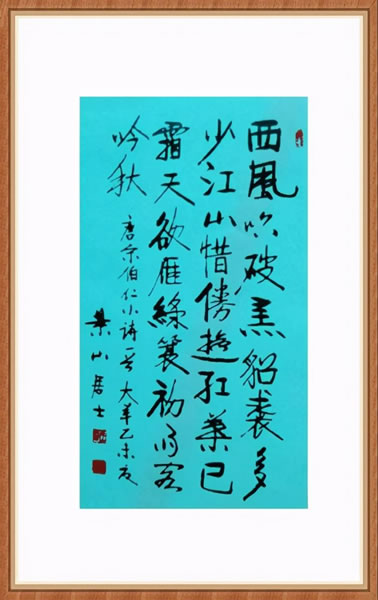 西風吹破黑貂裘多
少江山惜倦遊红葉已
霜天欲雁綠蓑初雨客
吟秋
唐宋伯仁小詩一首 大羊乙未
葉山居士